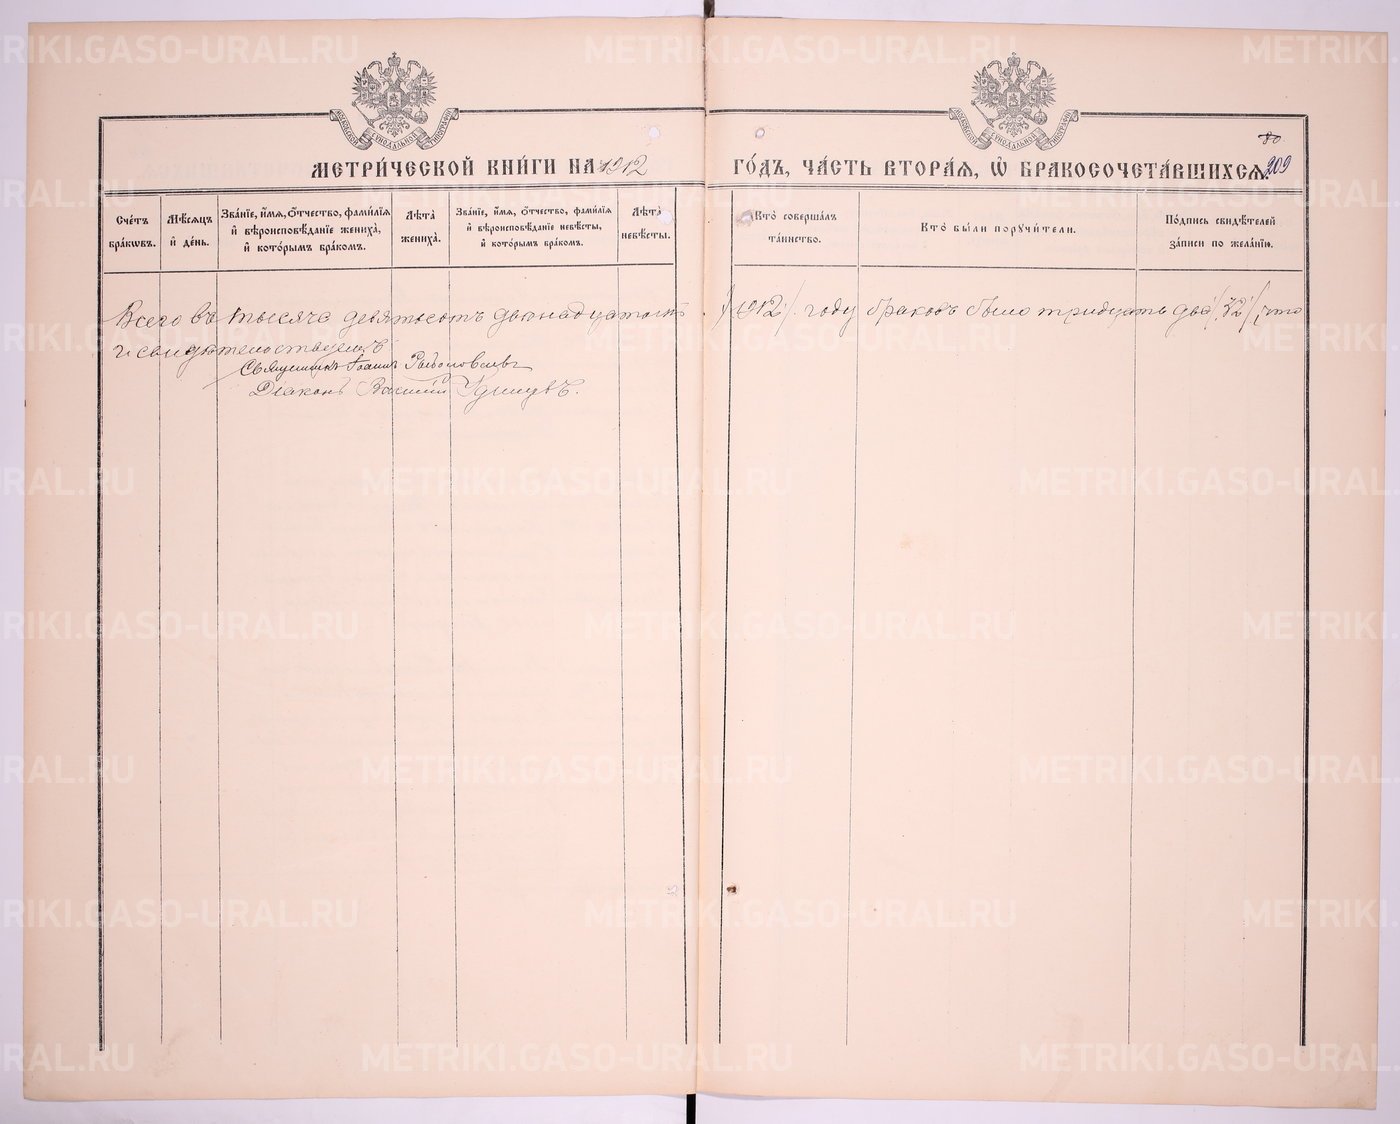 80
МЕТРИ́ЧЕСКОЙ КНИ́ГИ НА 1912 ГО́ДЪ, ЧА́СТЬ ВТОРА́Я, Ѡ҆ БРАКОСОЧЕТА́ВШИХСЯ. 209
Сче́тъ бра́кѡвъ.
Мѣ́сяцъ и҆ де́нь.
Зва́нїе, и҆́мя, ѻ҆́тчество, фами́лїя и҆ вѣроисповѣ́данїе жениха̀, и҆ кото́рымъ бра́комъ.
Лѣ́та жениха̀.
Зва́нїе, и҆́мя, ѻ҆́тчество, фами́лїя и҆ вѣроисповѣ́данїе невѣ́сты, и҆ кото́рымъ бра́комъ.
Лѣ́та невѣ́сты.
Кто̀ соверша́лъ та́инство.
Кто̀ бы́ли поручи́тели.
По́дпись свидѣ́телей за́писи по жела́нїю.
Всего въ тысяча девятьсотъ двенадцатомъ /1912/ году браковъ было тридцать два /32/, что
и свидѣтельствуемъ
Священникъ Іоаннъ
Діаконъ Василій
METRIKI.GASO-URAL.RU